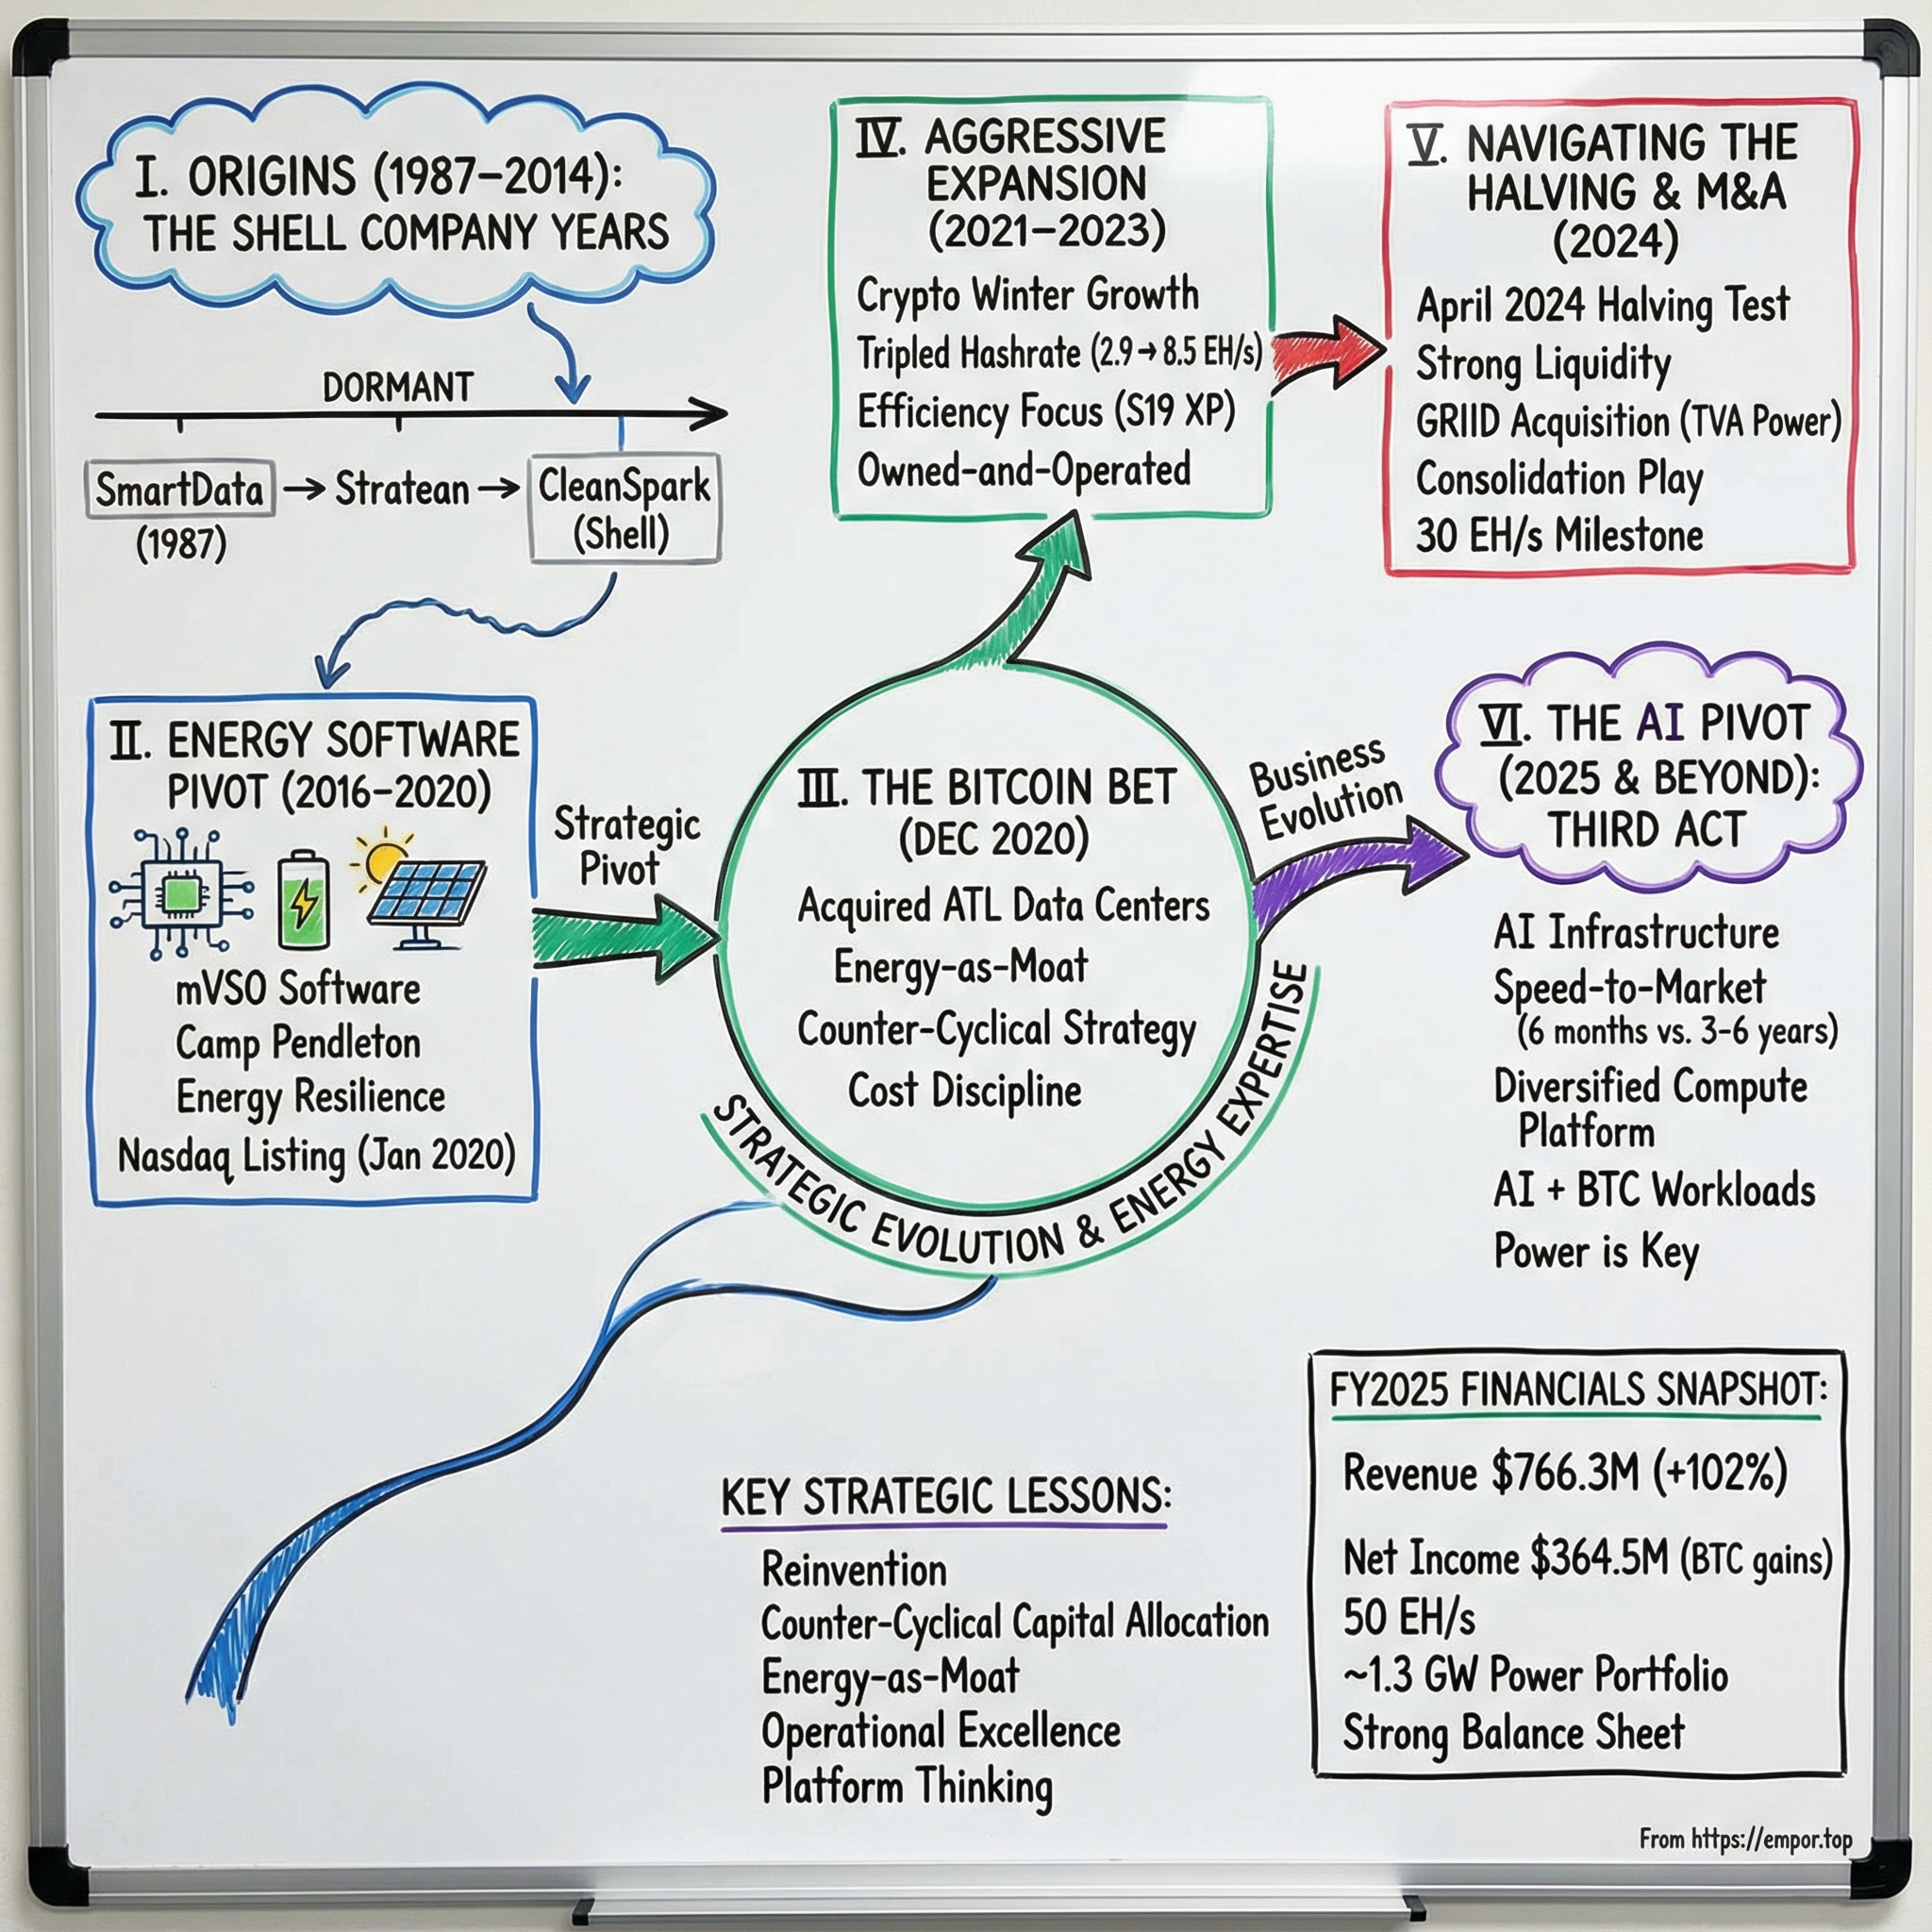 I. ORIGINS (1987–2014):
THE SHELL COMPANY YEARS
DORMANT
SmartData → Stratean → CleanSpark
(1987)
(Shell)
II. ENERGY SOFTWARE
PIVOT (2016–2020)
mVSO Software
Camp Pendleton
Energy Resilience
Nasdaq Listing (Jan 2020)
Strategic
Pivot
III. THE BITCOIN BET
(DEC 2020)
Acquired ATL Data Centers
Energy-as-Moat
Counter-Cyclical Strategy
Cost Discipline
STRATEGIC EVOLUTION & ENERGY EXPERTISE
IV. AGGRESSIVE
EXPANSION
(2021–2023)
Crypto Winter Growth
Tripled Hashrate (2.9→8.5 EH/s)
Efficiency Focus (S19 XP)
Owned-and-Operated
V. NAVIGATING THE
HALVING & M&A
(2024)
April 2024 Halving Test
Strong Liquidity
GRIID Acquisition (TVA Power)
Consolidation Play
30 EH/s Milestone
Business
Evolution
VI. THE AI PIVOT
(2025 & BEYOND):
THIRD ACT
AI Infrastructure
Speed-to-Market
(6 months vs. 3-6 years)
Diversified Compute
Platform
AI + BTC Workloads
Power is Key
KEY STRATEGIC LESSONS:
Reinvention
Counter-Cyclical Capital Allocation
Energy-as-Moat
Operational Excellence
Platform Thinking
FY2025 FINANCIALS SNAPSHOT:
Revenue $766.3M (+102%)
Net Income $364.5M (BTC gains)
50 EH/s
~1.3 GW Power Portfolio
Strong Balance Sheet
From https://empor.top